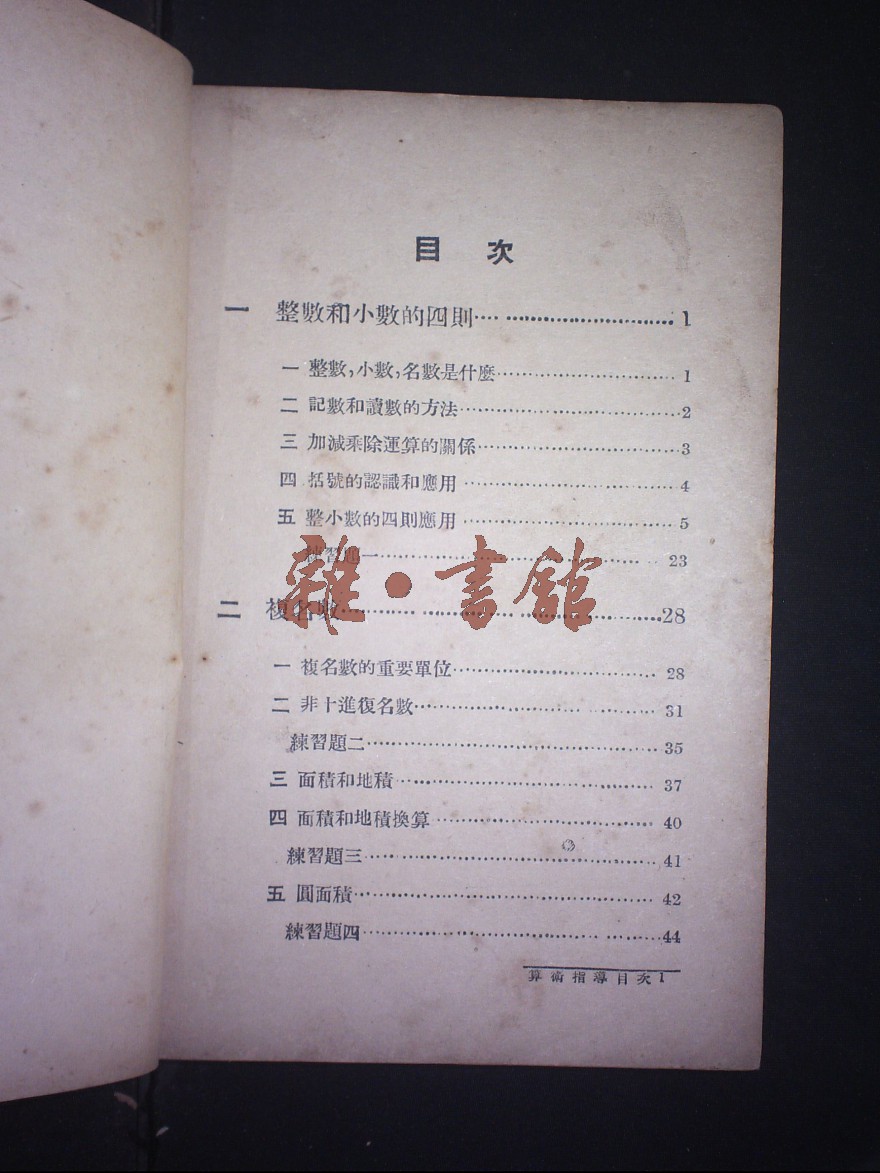 目 次
一 整數和小數的四則………………………1
一 整數,小數,名數是什麼………………………1
二 記數和讀數的方法………………………2
三 加減乘除運算的關係………………………3
四 括號的認識和應用………………………4
五 整小數的四則應用………………………5
練習題一………………………23
雜·書館
二 複名數………………………28
一 複名數的重要單位………………………28
二 非十進復名數………………………31
練習題二………………………35
三 面積和地積………………………37
四 面積和地積換算………………………40
練習題三………………………41
五 圓面積………………………42
練習題四………………………44
算術指導目次 1